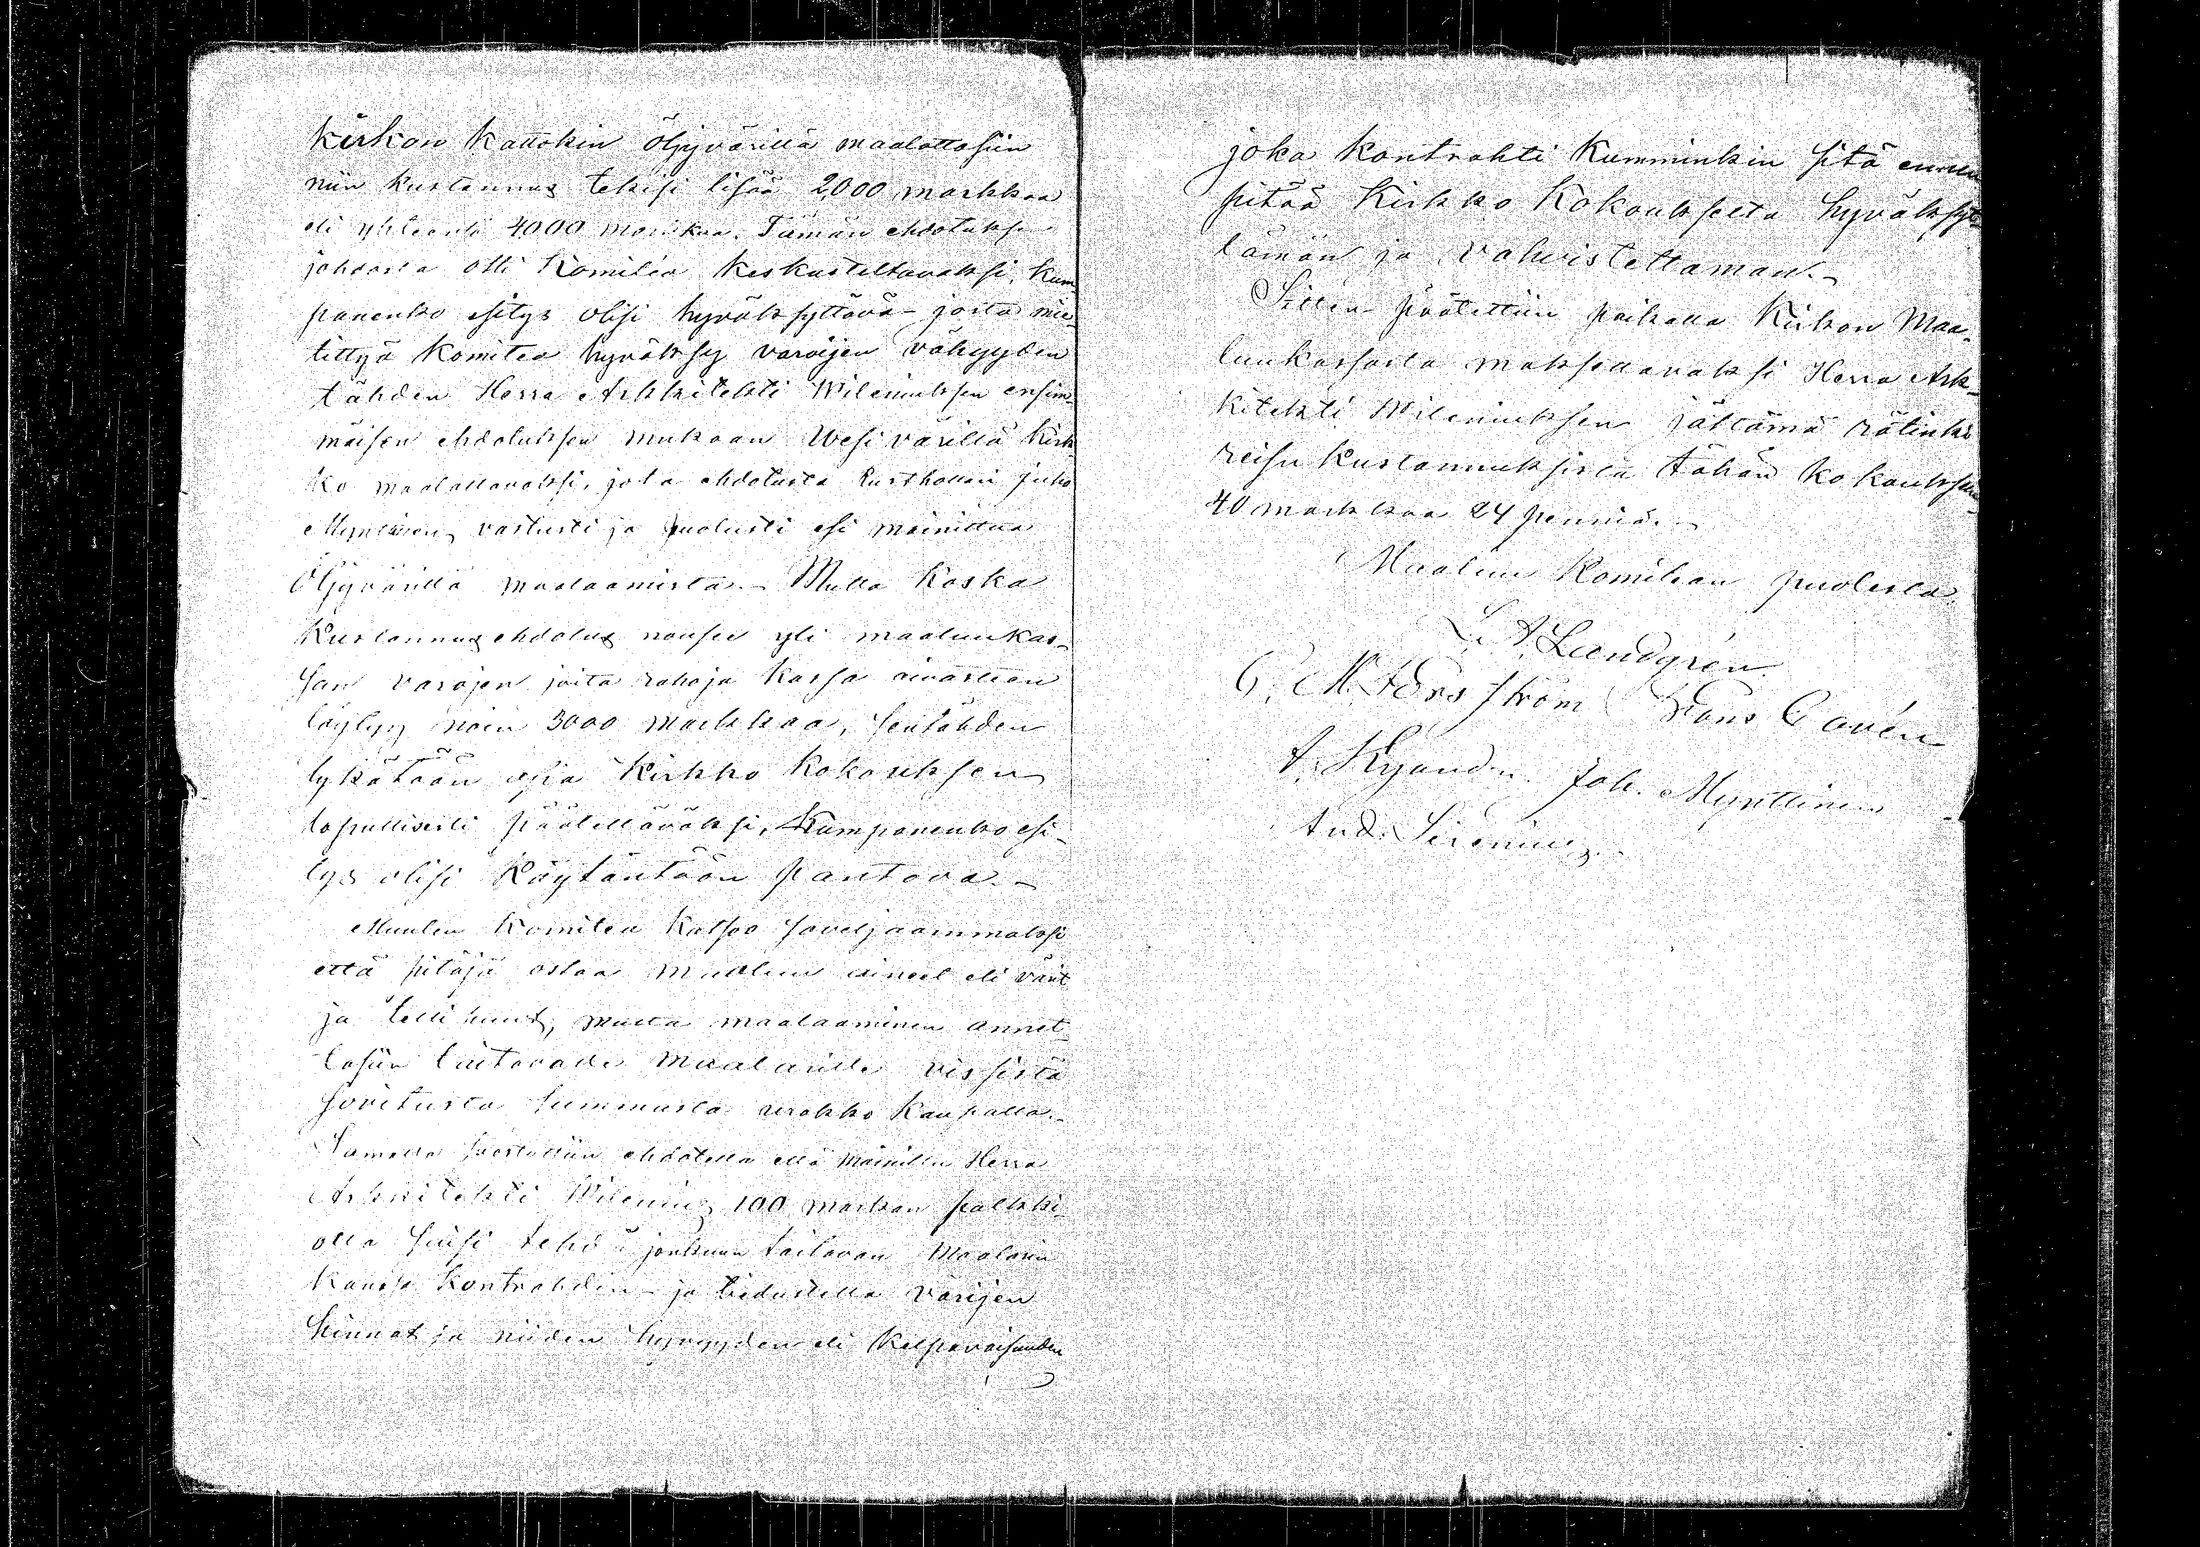 Kirkon Kattokin Öljyvärillä maalattasiin
niin kustannus tekisi lisää 2,000 markkaa
eli yhteensä 4000 markkaa. Tämän ehdotuksen
johdosta otti Komitea keskusteltavaksi, kum-
panenko esitys olisi hyväksyttävä – josta mie-
tittyä Komitea hyväksyy varoijen vähyyden
tähden Herra Arkkitehti Wileniuksen ensim-
mäisen ehdotuksen mukaan Wesi värillä Kirk-
ko maalattavaksi, jota ehdotusta Rusthollari Juho
Mynttinen vastusti ja puolusti esi mainittua
Öljyvärillä maalaamista. – Mutta koska
Kustannus ehdotus nousee yli maaluukas-
san varojen joita rahoja kassa ainoastaan
löytyy noin 3000 markkaa, sentähden
lykätään asia Kirkko Kokouksen
lopullisesti päätettäväksi, Kumpanenko esi-
tys olisi Käytäntöön pantava. –
Muuten Komitea katsoo soveljaammaksi
että pitäjä ostaa maaluu aineet eli värit
ja telli, mutta maalaaminen annet-
tasiin taitavalle Maalarille vissistä
sovitusta summasta urakko kaupalla. –
Samalla suostuttiin ehdotella että mainittu Herra
Arkkitehti Wilenius 100 markan palkki-
olla saisi tehdä jonkuun taitavan Maalarin
kanssa Kontrahdin – ja tiedustella värijen
hinnat ja niiden hyvyyden eli kelpavaisuuden
joka kontrahti kumminkin sitä ennen
pitää Kirkko Kokoukselta hyväksyt-
tämän ja vahvistettaman. –
Sitten päätettiin paikalla Kirkon Maa-
luukassasta maksettavaksi Herra Ark-
kitehti Wileniuksen jättämä rätinki
reisu kustannuksista tähän kokoukseen
40 markkaa 24 penniä. –
Maaluu Komitean puolesta:
L. A. Lundgrén
C. M. Forsström Frans Cavén
A. Kyander. Joh. Mynttinen
And. Sirenius.